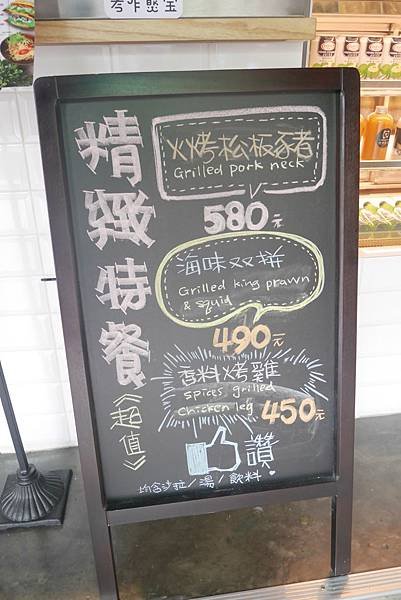 精緻特餐
《超值》
火烤松板豬
Grilled pork neck
580元
海味双拼
Grilled king prawn
& squid
490元
香料烤雞
spices grilled
chicken leg
450元
讚!
均含沙拉/湯/飲料